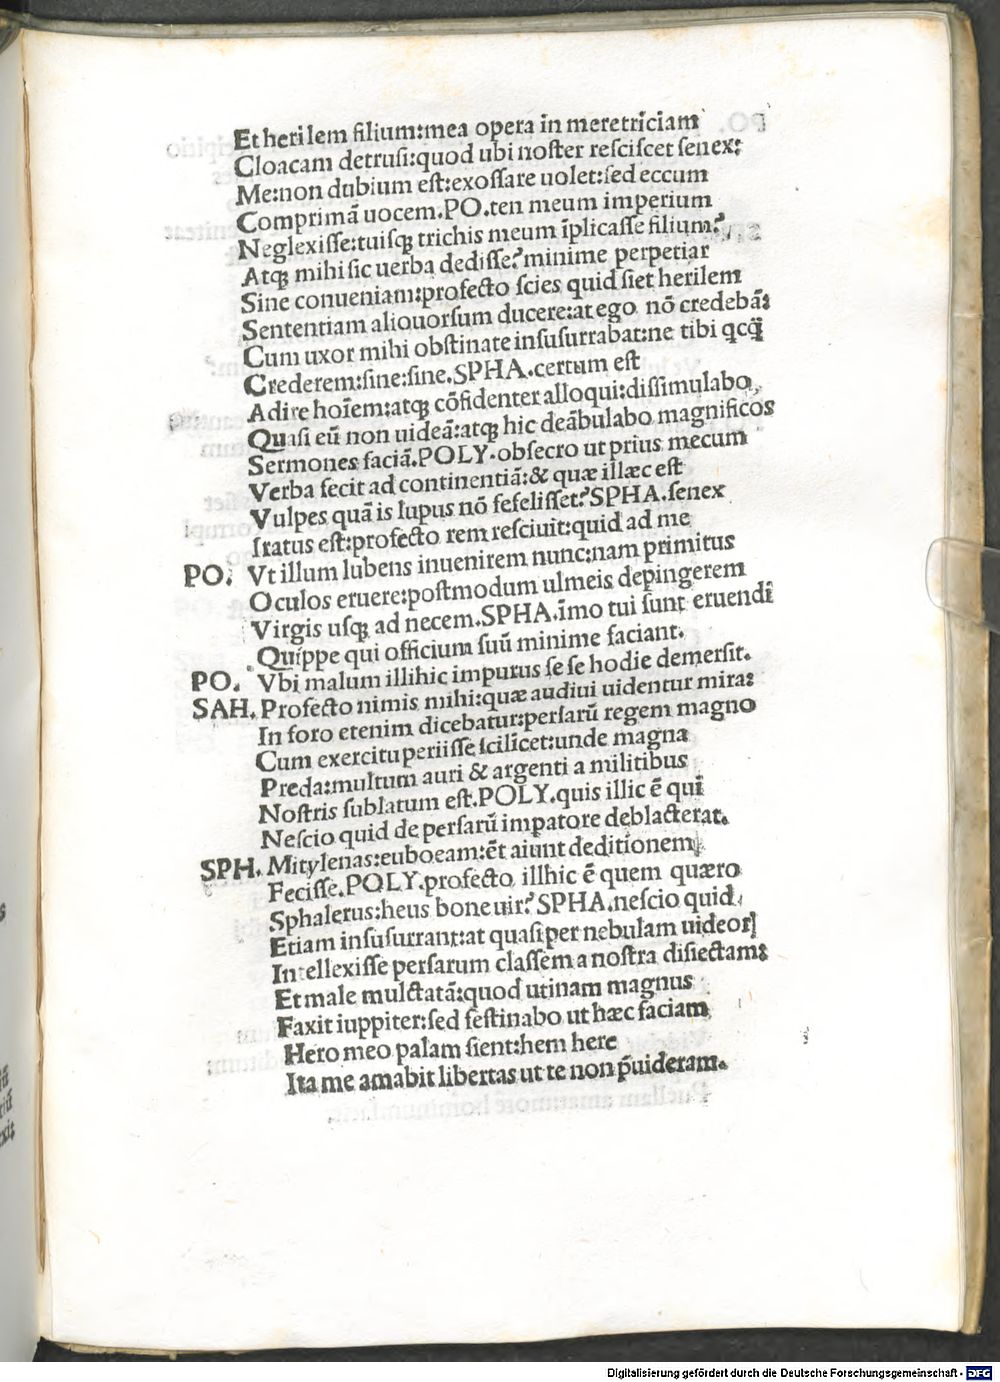 Et herilem filium:mea opera in meretriciam
Cloacam detrusi:quod ubi noster resciscet senex:
Me:non dubium est:exossare uolet:sed eccum
Comprimã uocem.PO.ten meum imperium
Neglexisse:tuisqȝ trichis meum ĩplicasse filium?
Atqȝ mihi sic uerba dedisse?minime perpetiar
Sine conueniam:profecto scies quid siet herilem
Sententiam aliouorsum ducere:at ego nõ credebã:
Cum uxor mihi obstinate insusurrabat:ne tibi qcq̃
Crederem:sine:sine.SPHA.certum est
Adire hoĩem:atqȝ cõfidenter alloqui:dissimulabo
Quasi eũ non uideã:atqȝ hic deãbulabo magnificos
Sermones faciã.POLY.obsecro ut prius mecum
Verba fecit ad continentiã:& quæ illæc est
Vulpes quã is lupus nõ fefelisset?SPHA.senex
Iratus est:profecto rem resciuit:quid ad me
PO. Vt illum lubens inuenirem nunc:nam primitus
Oculos eruere:postmodum ulmeis depingerem
Virgis usqȝ ad necem.SPHA.ĩmo tui sunt eruendi
Quippe qui officium suũ minime faciant.
PO. Vbi malum illihic impurus se se hodie demersit.
SAH. Profecto nimis mihi:quæ audiui uidentur mira:
In foro etenim dicebatur:persarũ regem magno
Cum exercitu periisse scilicet:unde magna
Preda:multum auri & argenti a militibus
Nostris sublatum est.POLY.quis illic ẽ qui
Nescio quid de persarũ impatore deblacterat.
SPH. Mitylenas:euboeam:ẽt aiunt deditionem
Fecisse.POLY.profecto illhic ẽ quem quæro
Sphalerus:heus bone uir?SPHA.nescio quid
Etiam insusurrant:at quasi per nebulam uideor
Intellexisse persarum classem a nostra disiectam:
Et male mulctatã:quod utinam magnus
Faxit iuppiter:sed festinabo ut hæc faciam
Hero meo palam sient:hem here
Ita me amabit libertas ut te non p̃uideram.
Digitalisierung gefördert durch die Deutsche Forschungsgemeinschaft - DFG